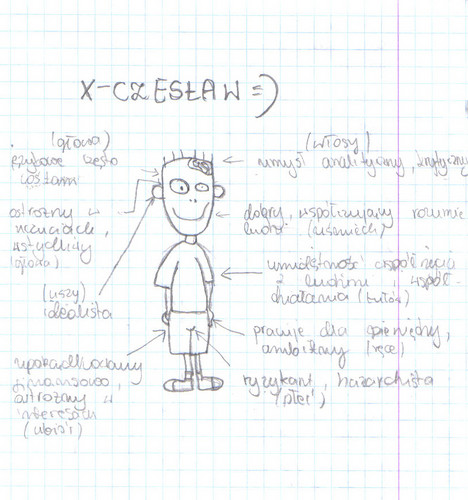 X-CZESŁAW =)
(głowa)
często
ostrożny w
uczuciach,
wstydliwy
(uszy)
idealista
uporządkowany
finansowo,
ostrożny w
interesach
(ubiór)
(włosy)
umysł analityczny, krytyczny
dobry, współczujący
(uśmiech)
umiejętność współżycia
z ludźmi i współ-
działania (tułów)
pracuje dla pieniędzy,
ambitny (ręce)
ryzykant, hazardzista
(płeć)